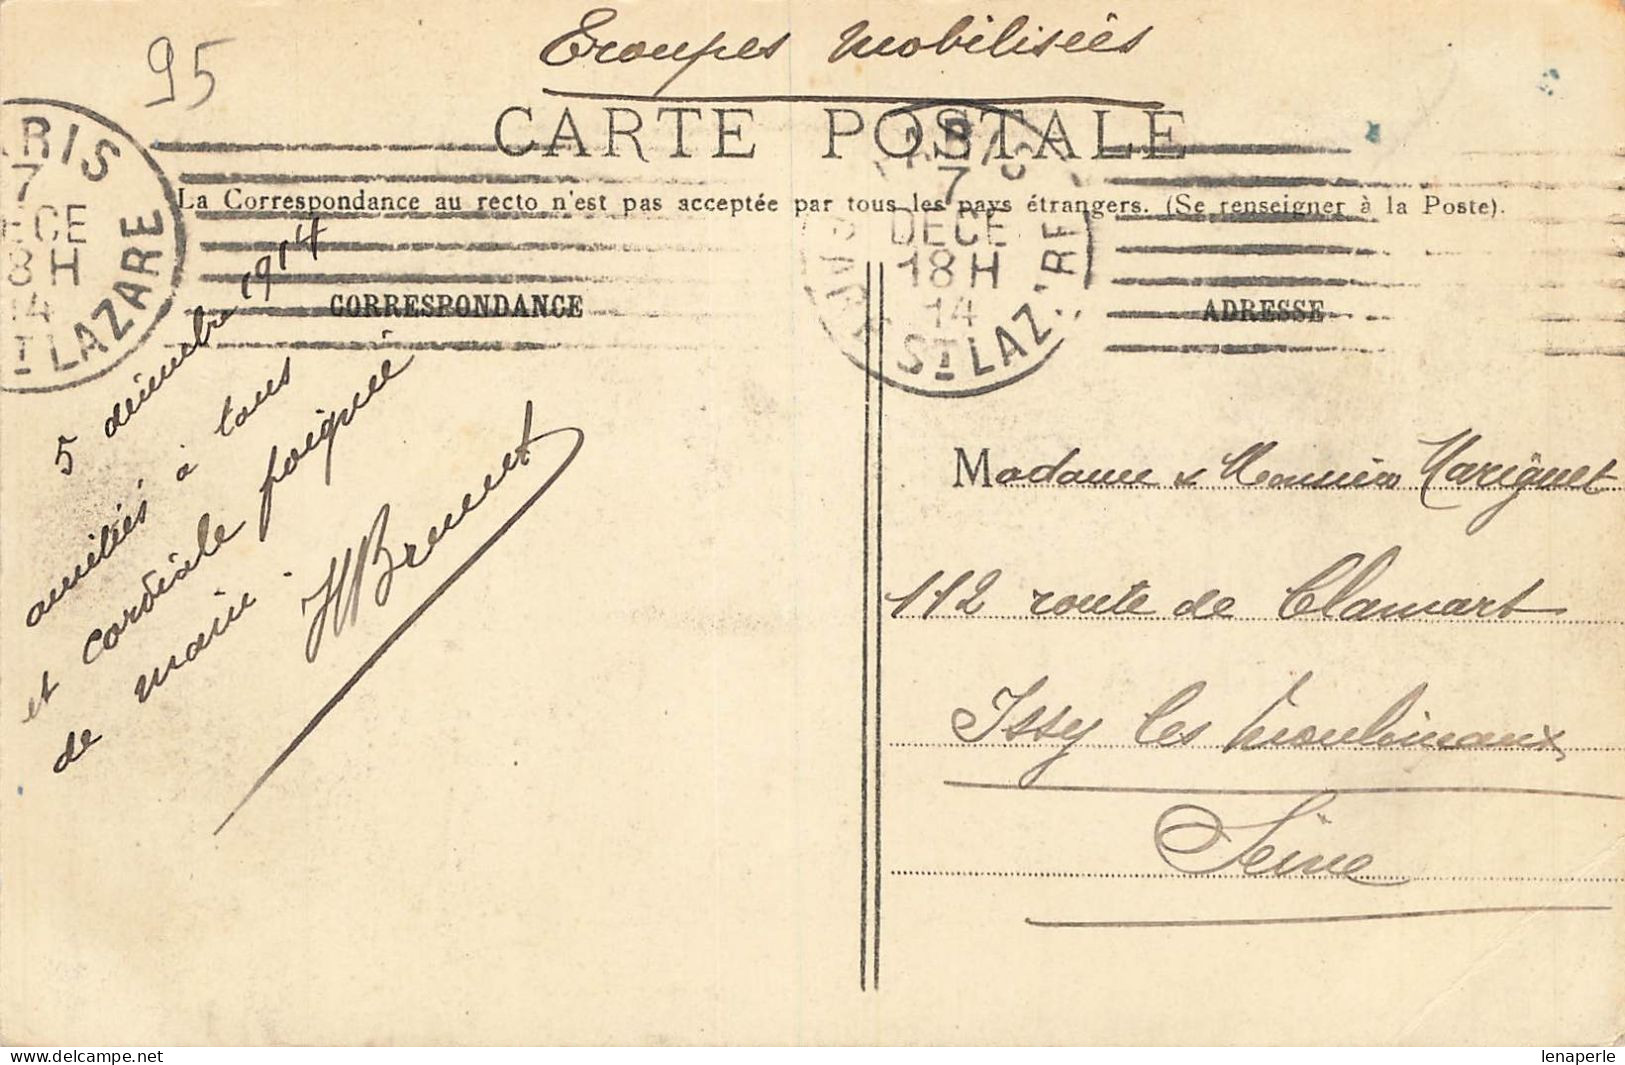 Troupes mobilisées
95
CARTE POSTALE
La Correspondance au recto n'est pas acceptée par tous les pays étrangers. (Se renseigner à la Poste).
RIS
7
ECE
8 H
14
LAZARE
7
DECE
18 H
14
ST LAZ RE
CORRESPONDANCE
ADRESSE
5 décembre 1914
amitiés à tous
et cordiale poignée
de main.
HBrunet
Madame & Monsieur Mariguet
112 route de Clamart
Issy les Moulineaux
Seine
lenaperle